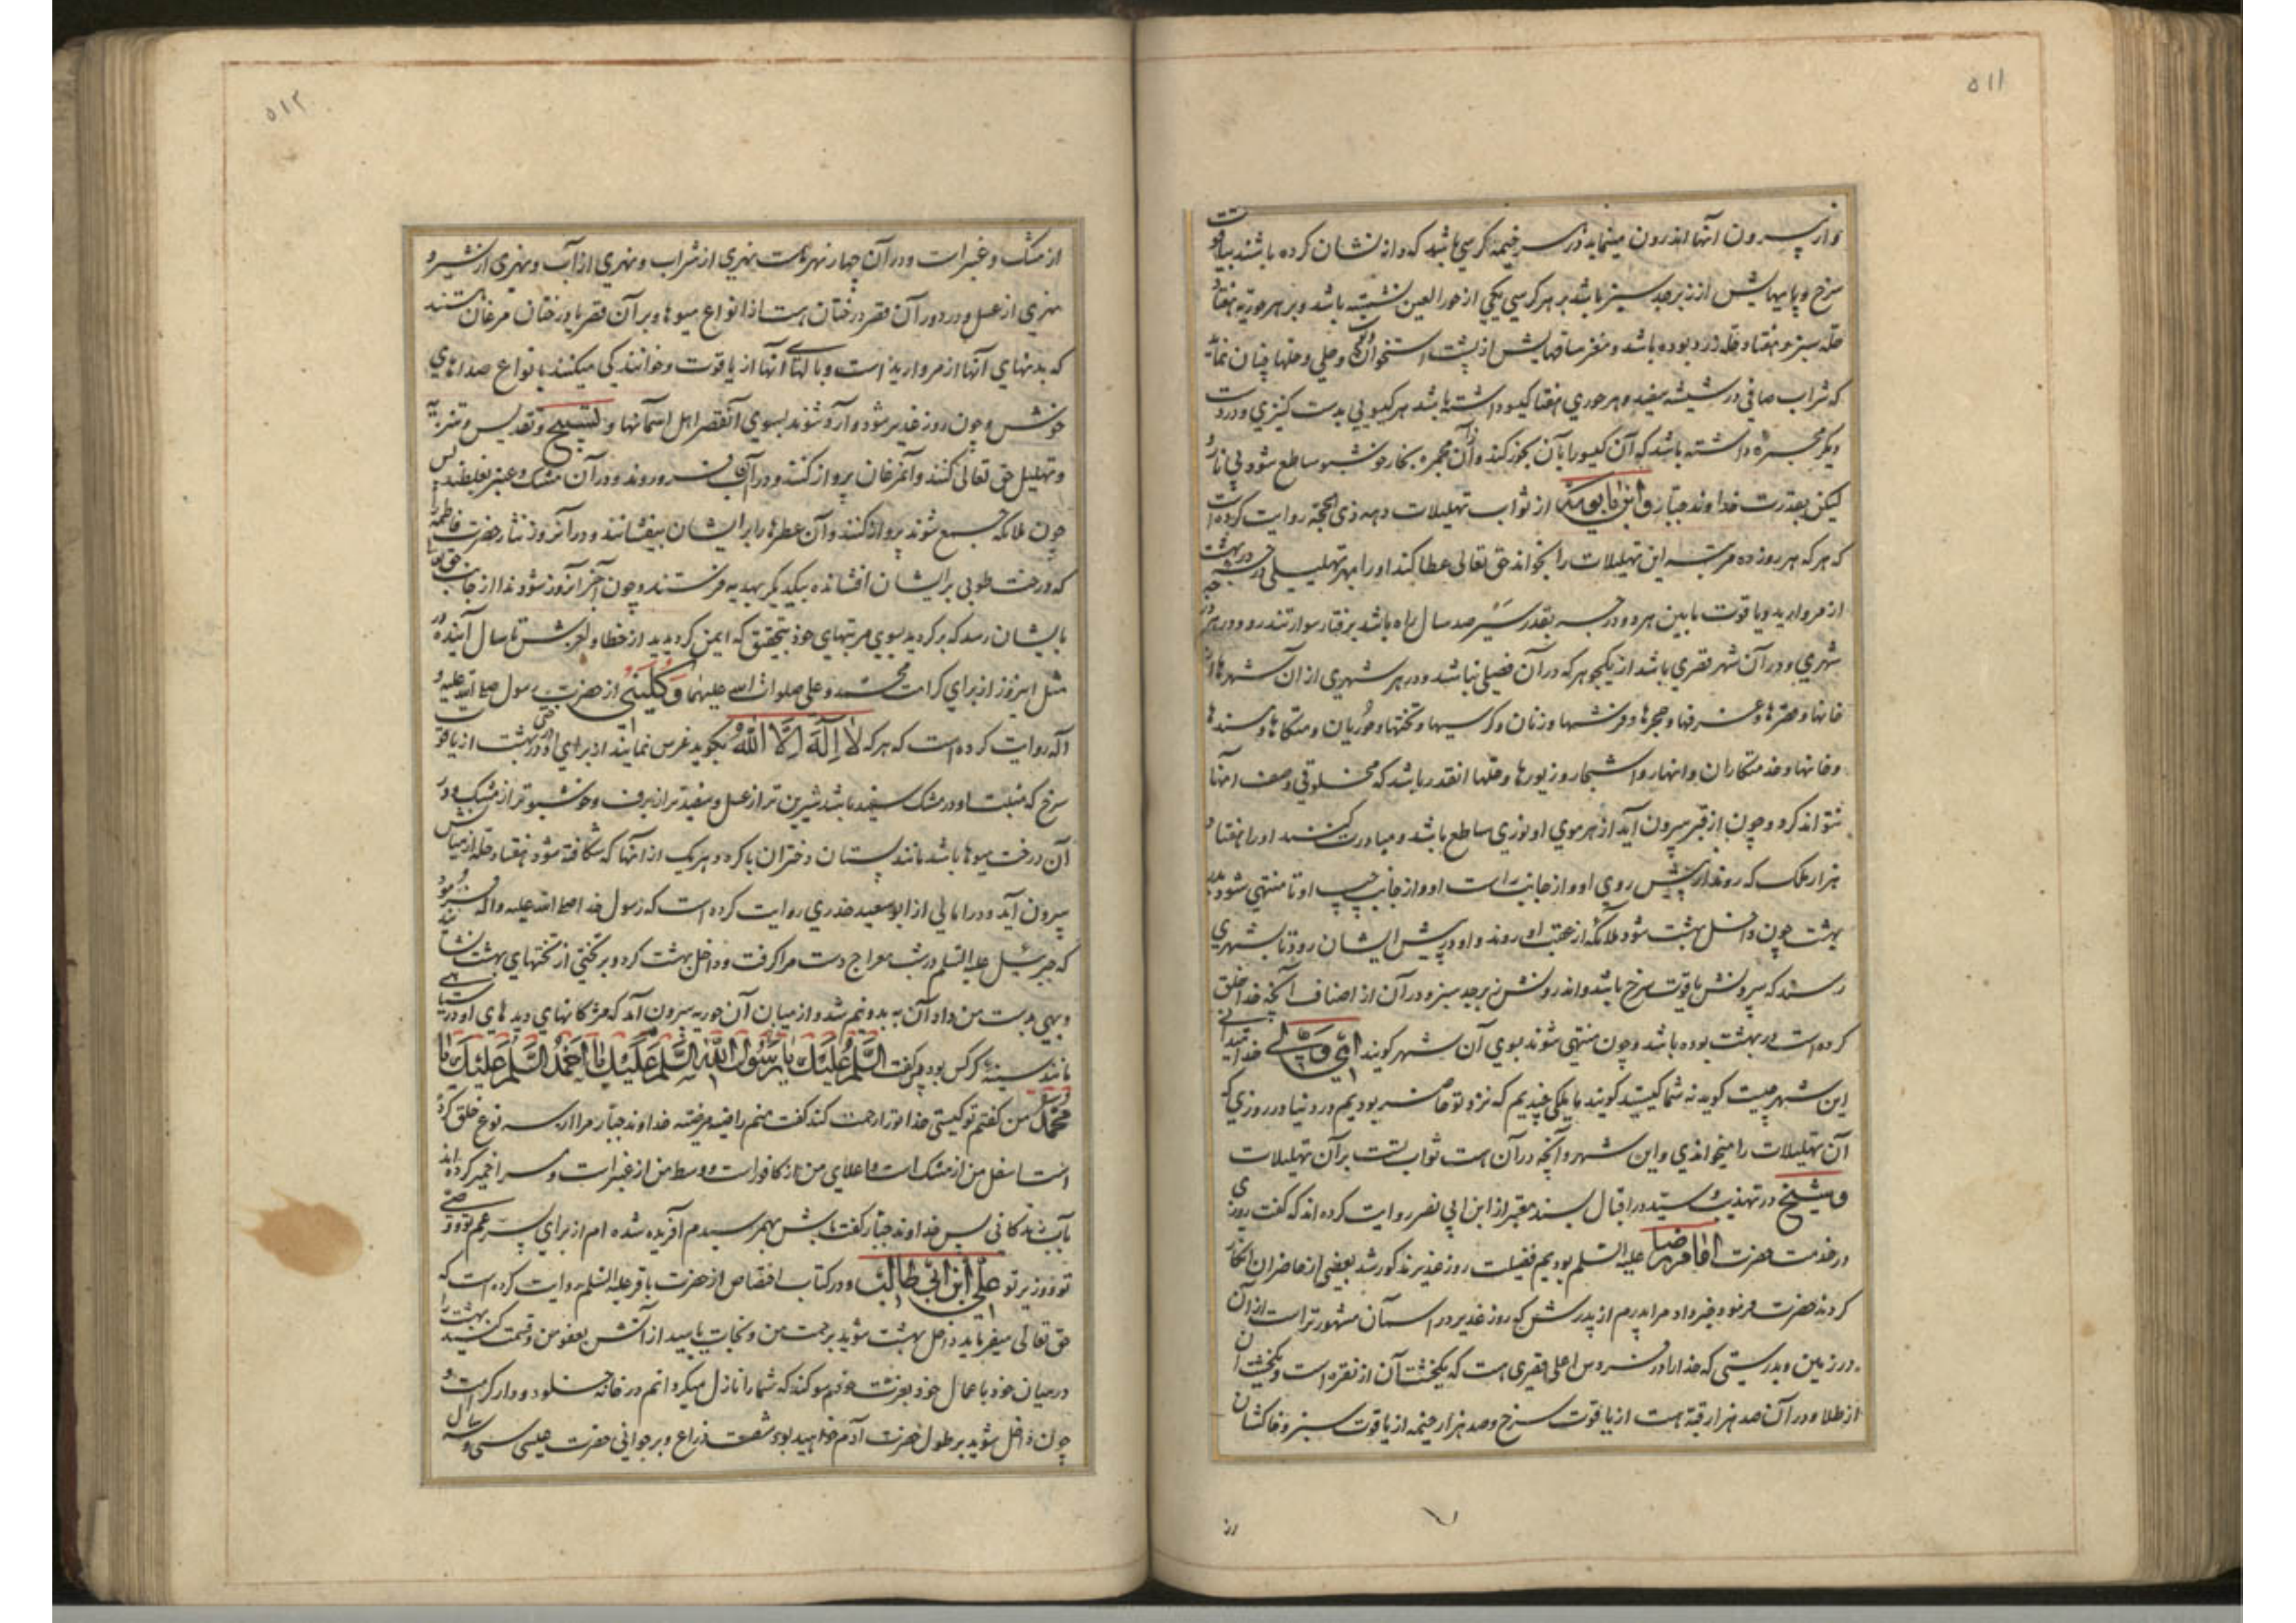 ۵۱۱
و از بیرون آنها اندرون مینماید در هر خیمه کرسی باشد که دانه نشان کرده باشند بیاقوت
سرخ و پایهایش از زبرجد سبز باشد بر هر کرسی یکی از حور العین نشسته باشد و بر هر حوریه هفتاد
حله سبز و هفتاد حله زرد بوده باشد و مغز ساقهایش از پشت استخوان و حلی و حلها چنان نماید
که شراب صافی در شیشه سفید و هر حوری هفتاد کیسو داشته باشد هر کیسویی بدست کنیزی و در دست
دیکر مجمره داشته باشد که آن کیسو را بآن بخور کند و از آن مجمره بخار خوشبو ساطع شود بی نار و
لیکن بقدرت خداوند جبار و ابن بابویه از ثواب تهلیلات دهه ذی الحجه روایت کرده است
که هر که هر روز ده مرتبه این تهلیلات را بخواند حق تعالی عطا کند او را بهر تهلیلی در بهشت درجه
از مروارید و یاقوت مابین هر دو درجه بقدر سیر صد سال راه باشد برفتار سوار تندرو و در هر درجه
شهری و در آن شهر قصری باشد از یکجوهر که در آن فصلی نباشد و در هر شهری از آن شهرها از
خانها و قصرها و غرفها و حجرها و فرشها و زنان و کرسیها و تختها و حوریان و متکاها و مسندها
و خانها و خدمتکاران و انهار و اشجار و زیورها و حلها انقدر باشد که مخلوقی وصف آنها
نتواند کرد و چون از قبر بیرون آید از هر موی او نوری ساطع باشد و مبادرت کنند او را هفتاد
هزار ملک که روند از پیش روی او و از جانب راست او و از جانب چپ او تا منتهی شود بدر
بهشت چون داخل بهشت شود ملائکه از عقب او روند و او در پیش ایشان رود تا بشهری
رسند که بیرونش یاقوت سرخ باشد و اندرونش زبرجد سبز و در آن از اصناف آنچه خدا خلق
کرده است در بهشت بوده باشد و چون منتهی شوند بسوی آن شهر کویند ای ولی خدا میدانی
این شهر چیست کوید نه شما کیستید کویند ما ملکی چندیم که نزد تو حاضر بودیم در دنیا در روزی که
آن تهلیلات را میخواندی و این شهر و آنچه در آن هست ثواب تست بر آن تهلیلات
و شیخ در تهذیب و سید در اقبال بسند معتبر از ابن ابی نصر روایت کرده اند که کفت روزی
در خدمت حضرت امام رضا علیه السلم بودیم فضیلت روز غدیر مذکور شد بعضی از حاضران انکار
کردند حضرت فرمود خبر داد مرا پدرم از پدرش که روز غدیر در آسمان مشهورتر است از آن
در زمین و بدرستی که خدا را در فردوس اعلی قصری هست که یکخشت آن از نقره است و یکخشت آن
از طلا و در آن صد هزار قبه هست از یاقوت سرخ و صد هزار خیمه از یاقوت سبز و خاکشان
از
۵۱۲
از مشک و عنبر است و در آن چهار نهر هست نهری از شراب و نهری از آب و نهری از شیر و
نهری از عسل و در دور آن قصر درختان هست از انواع میوها و بر آن قصر یا درختان مرغان هستند
که بدنهای آنها از مروارید است و بالهای آنها از یاقوت و خوانندکی میکنند بانواع صداهای
خوش و چون روز غدیر شود وارد شوند بسوی آنقصر اهل آسمانها و تسبیح و تقدیس و تنزیه
و تهلیل حق تعالی کنند و آنمرغان پرواز کنند و در آن آب فرو روند و در آن مشک و عنبر بغلطند پس
چون ملائکه جمع شوند پرواز کنند و آن عطرها را بر ایشان بیفشانند و در آنروز نثار حضرت فاطمه را
که درخت طوبی بر ایشان افشانده بیکدیکر بهدیه فرستند و چون آخر آنروز شود ندا از جانب حق تعالی
بایشان رسد که برکردید بسوی مرتبهای خود بتحقیق که ایمن کردیدید از خطا و لغزش تا سال آینده در
مثل امروز از برای کرامت محمد و علی صلوات الله علیهما و کلینی از حضرت رسول صلی الله علیه و
آله روایت کرده است که هر که لا اله الا الله بکوید غرس نمایند از برای او درختی در بهشت از یاقوت
سرخ که منبت او در مشک سفید باشد شیرین تر از عسل و سفیدتر از برف و خوشبوتر از مشک و در
آن درخت میوها باشد مانند پستان دختران باکره و هر یک از آنها که شکافته شود هفتاد حله از میانش
بیرون آید و در امالی از ابو سعید خدری روایت کرده است که رسول خدا صلی الله علیه و آله فرمود
که جبرئیل علیه السلم در شب معراج دست مرا کرفت و داخل بهشت کرد و بر تختی از تختهای بهشت نشانید
و بهی بدست من داد آن به بدو نیم شد و از میان آن حوریه بیرون آمد که مژکانهای دیدهای او در سیاهی
مانند سینه کرکس بود پس کفت السلم علیک یا رسول الله السلم علیک یا احمد السلم علیک یا
محمد من کفتم تو کیستی خدا تو را رحمت کند کفت منم راضیه مرضیه خداوند جبار مرا از سه نوع خلق کرده
است اسفل من از مشک است و اعلای من از کافور است و وسط من از عنبر است و سرا خمیر کرده اند
بآب زندکانی پس خداوند جبار کفت باش بهم رسیدم آفریده شده ام از برای پسر عم تو و وصی
تو و وزیر تو علی ابن ابی طالب و در کتاب اختصاص از حضرت باقر علیه السلم روایت کرده است که
حق تعالی میفرماید داخل بهشت شوید برحمت من و نجات یابید از آتش بعفو من و قسمت کنید بهشت را
در میان خود باعمال خود بعزت خودم سوکند که شما را نازل میکردانم در خانه خلود و دار کرامت و
چون داخل شوید بر طول حضرت آدم خواهید بود شصت ذراع و بر جوانی حضرت عیسی سی و سه سال